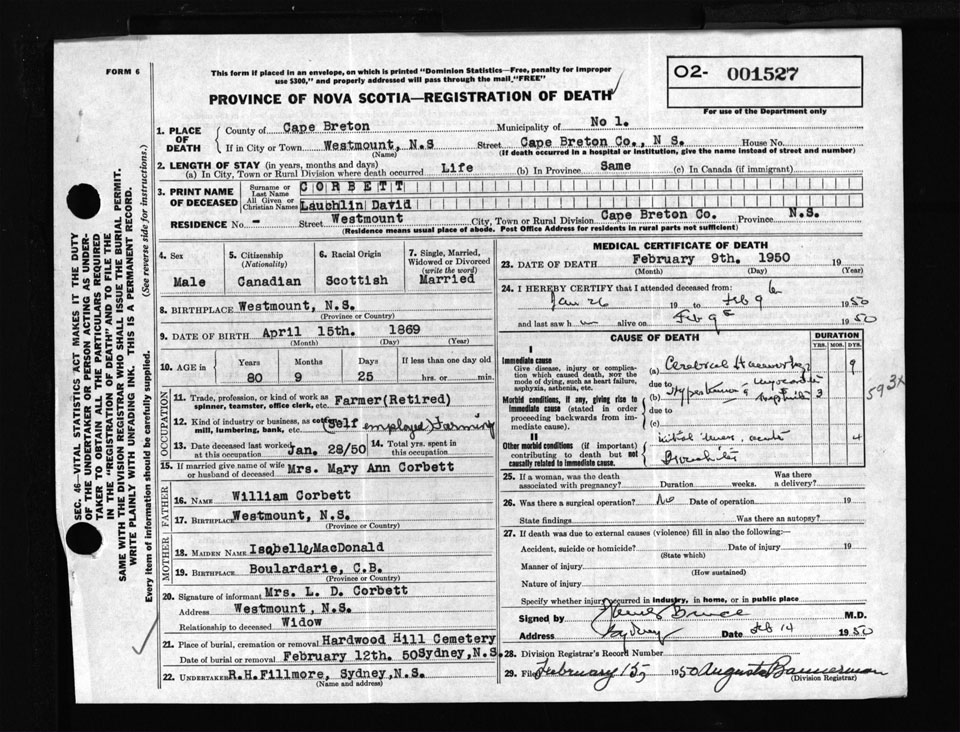 FORM 6
This form if placed in an envelope, on which is printed "Dominion Statistics—Free, penalty for improper
use $300," and properly addressed will pass through the mail "FREE"
O2- 001527
For use of the Department only
PROVINCE OF NOVA SCOTIA—REGISTRATION OF DEATH
1. PLACE OF DEATH
County of Cape Breton Municipality of No 1.
If in City or Town Westmount, N.S Street Cape Breton Co., N S. House No.
(Name) (If death occurred in a hospital or institution, give the name instead of street and number)
2. LENGTH OF STAY (in years, months and days)
(a) In City, Town or Rural Division where death occurred Life (b) In Province Same (c) In Canada (if immigrant)
3. PRINT NAME OF DECEASED
Surname or Last Name CORBETT
All Given or Christian Names Lauchlin David
RESIDENCE No. - Street Westmount City, Town or Rural Division Cape Breton Co. Province N.S.
(Residence means usual place of abode. Post Office Address for residents in rural parts not sufficient)
4. Sex Male
5. Citizenship (Nationality) Canadian
6. Racial Origin Scottish
7. Single, Married, Widowed or Divorced (write the word) Married
8. BIRTHPLACE Westmount, N.S.
(Province or Country)
9. DATE OF BIRTH April 15th. 1869
(Month) (Day) (Year)
10. AGE in Years 80 Months 9 Days 25 If less than one day old hrs. or min.
OCCUPATION
11. Trade, profession, or kind of work as spinner, teamster, office clerk, etc. Farmer(Retired)
12. Kind of industry or business, as cotton mill, lumbering, bank, etc. (Self employed) Farming
13. Date deceased last worked at this occupation Jan. 28/50 14. Total yrs. spent in this occupation
15. If married give name of wife or husband of deceased Mrs. Mary Ann Corbett
FATHER
16. NAME William Corbett
17. BIRTHPLACE Westmount, N.S.
(Province or Country)
MOTHER
18. MAIDEN NAME Isobelle MacDonald
19. BIRTHPLACE Boulardarie, C.B.
(Province or Country)
20. Signature of informant Mrs. L. D. Corbett
Address Westmount, N.S.
Relationship to deceased Widow
21. Place of burial, cremation or removal Hardwood Hill Cemetery
Date of burial or removal February 12th. 50 Sydney, N.S.
22. UNDERTAKER R.H.Fillmore, Sydney, N.S.
(Name and address)
MEDICAL CERTIFICATE OF DEATH
23. DATE OF DEATH February 9th. 1950 19
(Month) (Day) (Year)
24. I HEREBY CERTIFY that I attended deceased from
Jan 26 19 to Feb 9 1950
and last saw h im alive on Feb 9 1950
CAUSE OF DEATH
DURATION
YRS. MOS. DYS.
I
Immediate cause
Give disease, injury or complication which caused death, NOT the mode of dying, such as heart failure, asphyxia, asthenia, etc.
(a) Cerebral Haemorrhage 9
due to
Morbid conditions, if any, giving rise to immediate cause (stated in order proceeding backwards from immediate cause).
(b) Hypertension 3
due to
(c)
593x
II
Other morbid conditions (if important) contributing to death but not causally related to immediate cause.
acute 4
Bronchitis
25. If a woman, was the death associated with pregnancy? Duration weeks. Was there a delivery?
26. Was there a surgical operation? No Date of operation 19
State findings Was there an autopsy?
27. If death was due to external causes (violence) fill in also the following:—
Accident, suicide or homicide? Date of injury 19
(State which)
Manner of injury
(How sustained)
Nature of injury
Specify whether injury occurred in industry, in home, or in public place
Signed by Bruce M.D.
Address Sydney Date Feb 14 1950
28. Division Registrar's Record Number
29. Filed February 15, 1950 Augusta Bannerman
(Division Registrar)
SEC. 46—VITAL STATISTICS ACT MAKES IT THE DUTY
OF THE UNDERTAKER OR PERSON ACTING AS UNDERTAKER TO OBTAIN ALL THE PARTICULARS REQUIRED
IN THE "REGISTRATION OF DEATH" AND TO FILE THE
SAME WITH THE DIVISION REGISTRAR WHO SHALL ISSUE THE BURIAL PERMIT.
WRITE PLAINLY WITH UNFADING INK. THIS IS A PERMANENT RECORD.
Every item of information should be carefully supplied. (See reverse side for instructions.)